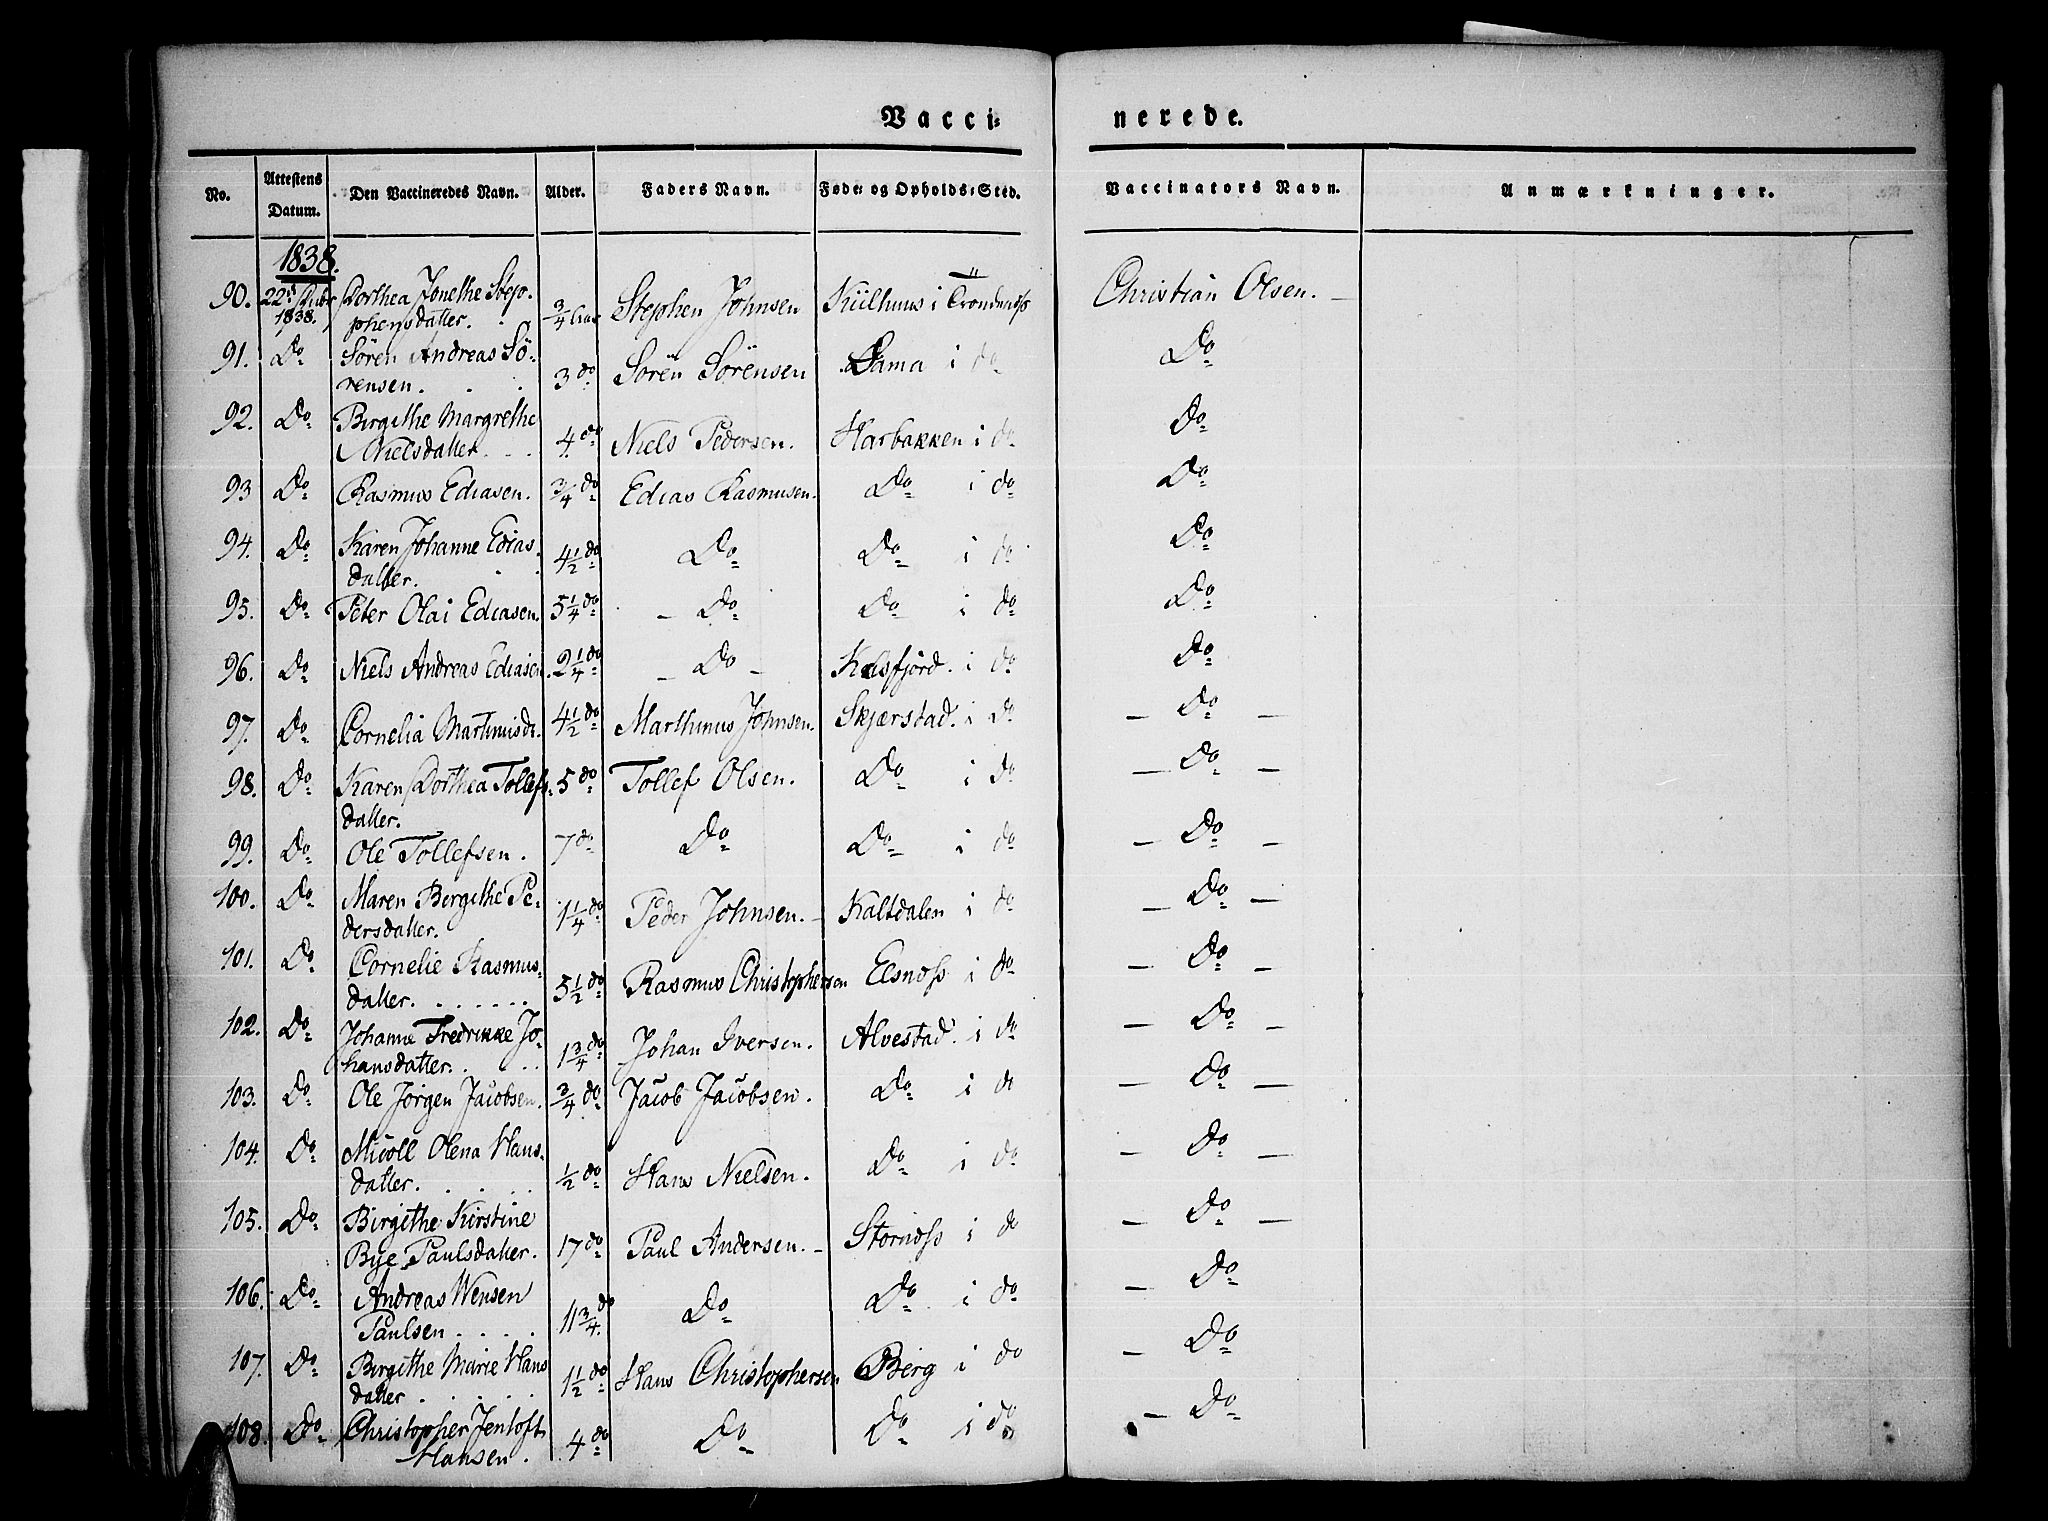 Vacci= nerede.
No. Attestens Datum. Den Vaccineredes Navn. Alder. Faders Navn. Føde- og Opholds-Sted. Vaccinators Navn. Anmærkninger.
1838.
90. 22de 1838. Dorthea Jonethe Step- 3/4 Stephen Johnsen i Trondenæss Christian Olsen. —
phensdatter.
91. Do Søren Andreas Sö- 3 do Sörën Sörensen Sama i do Do
rensen.
92. Do Birgithe Margrethe 4 do Niels Pedersen. Harbakken i do Do
Nielsdatter.
93 Do Rasmus Ediasen. 3/4 do Edias Rasmusen. Do i do Do
94. Do Karen Johanne Edias- 4 1/2 do Do Do i do Do
datter.
95. Do Peter Olai Ediasen. 5 1/4 do – Do Do i do Do
96. Do Niels Andreas Ediasen. 2 1/4 do – Do – Kilsfjord. i do Do
97. Do Cornelia Martinusdr. 4 1/2 do Marthinus Johnsen. Skjærstad. i do — Do —
98. Do Karen Dorthea Tollefs- 5 do Tollef Olsen. Do i do — Do —
datter.
99. Do Ole Tollefsen. 7 do Do Do i do — Do —
100. Do Maren Bergithe Pe- 1 1/4 do Peder Johnsen. – Kaltdalen i do — Do —
dersdatter.
101. Do Cornelie Rasmus- 5 1/2 do Rasmus Christophersen Elsnæss i do — Do —
datter. . . . . . .
102. Do Johanne Fredrikke Jo- 1 3/4 do Johan Iversen. Alvestad. i do — Do —
hansdatter. . . .
103. Do Ole Jörgen Jacobsen. 3/4 do Jacob Jacobsen. Do i do — Do —
104. Do Olena Hans- 1/2 do Hans Nielsen. Do i do — Do —
datter. . . . . .
105. Do Birgithe Kirstine 17 do Paul Andersen. – Stornæss i do — Do —
Bye Paulsdatter.
106. Do Andreas Wensen 11 3/4 do Do Do i do — Do
Paulsen . . . .
107. Do Birgithe Marie Hans 1 1/2 do Hans Christophersen Berg i do — Do
datter . . . . .
108. Do Christopher Jentoft 4 do Do Do i do — Do
Hansen.